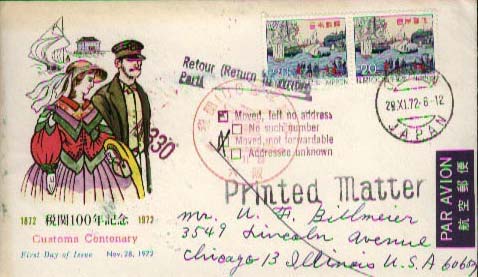 日本郵便
日本郵便
20
NIPPON
NIPPON
Retour (Return to
Parti
大阪
28.XI.72.6-12
JAPAN
Moved, left no address
No such number
Moved, not forwardable
Addressee unknown
330
Printed Matter
PAR AVION
航空郵便
1872 税関100年記念 1972
Customs Centenary
First Day of Issue Nov. 28, 1972
Mr. W. F. Billmeier
3549 Lincoln Avenue
Chicago 13 Illinois U.S.A 60657